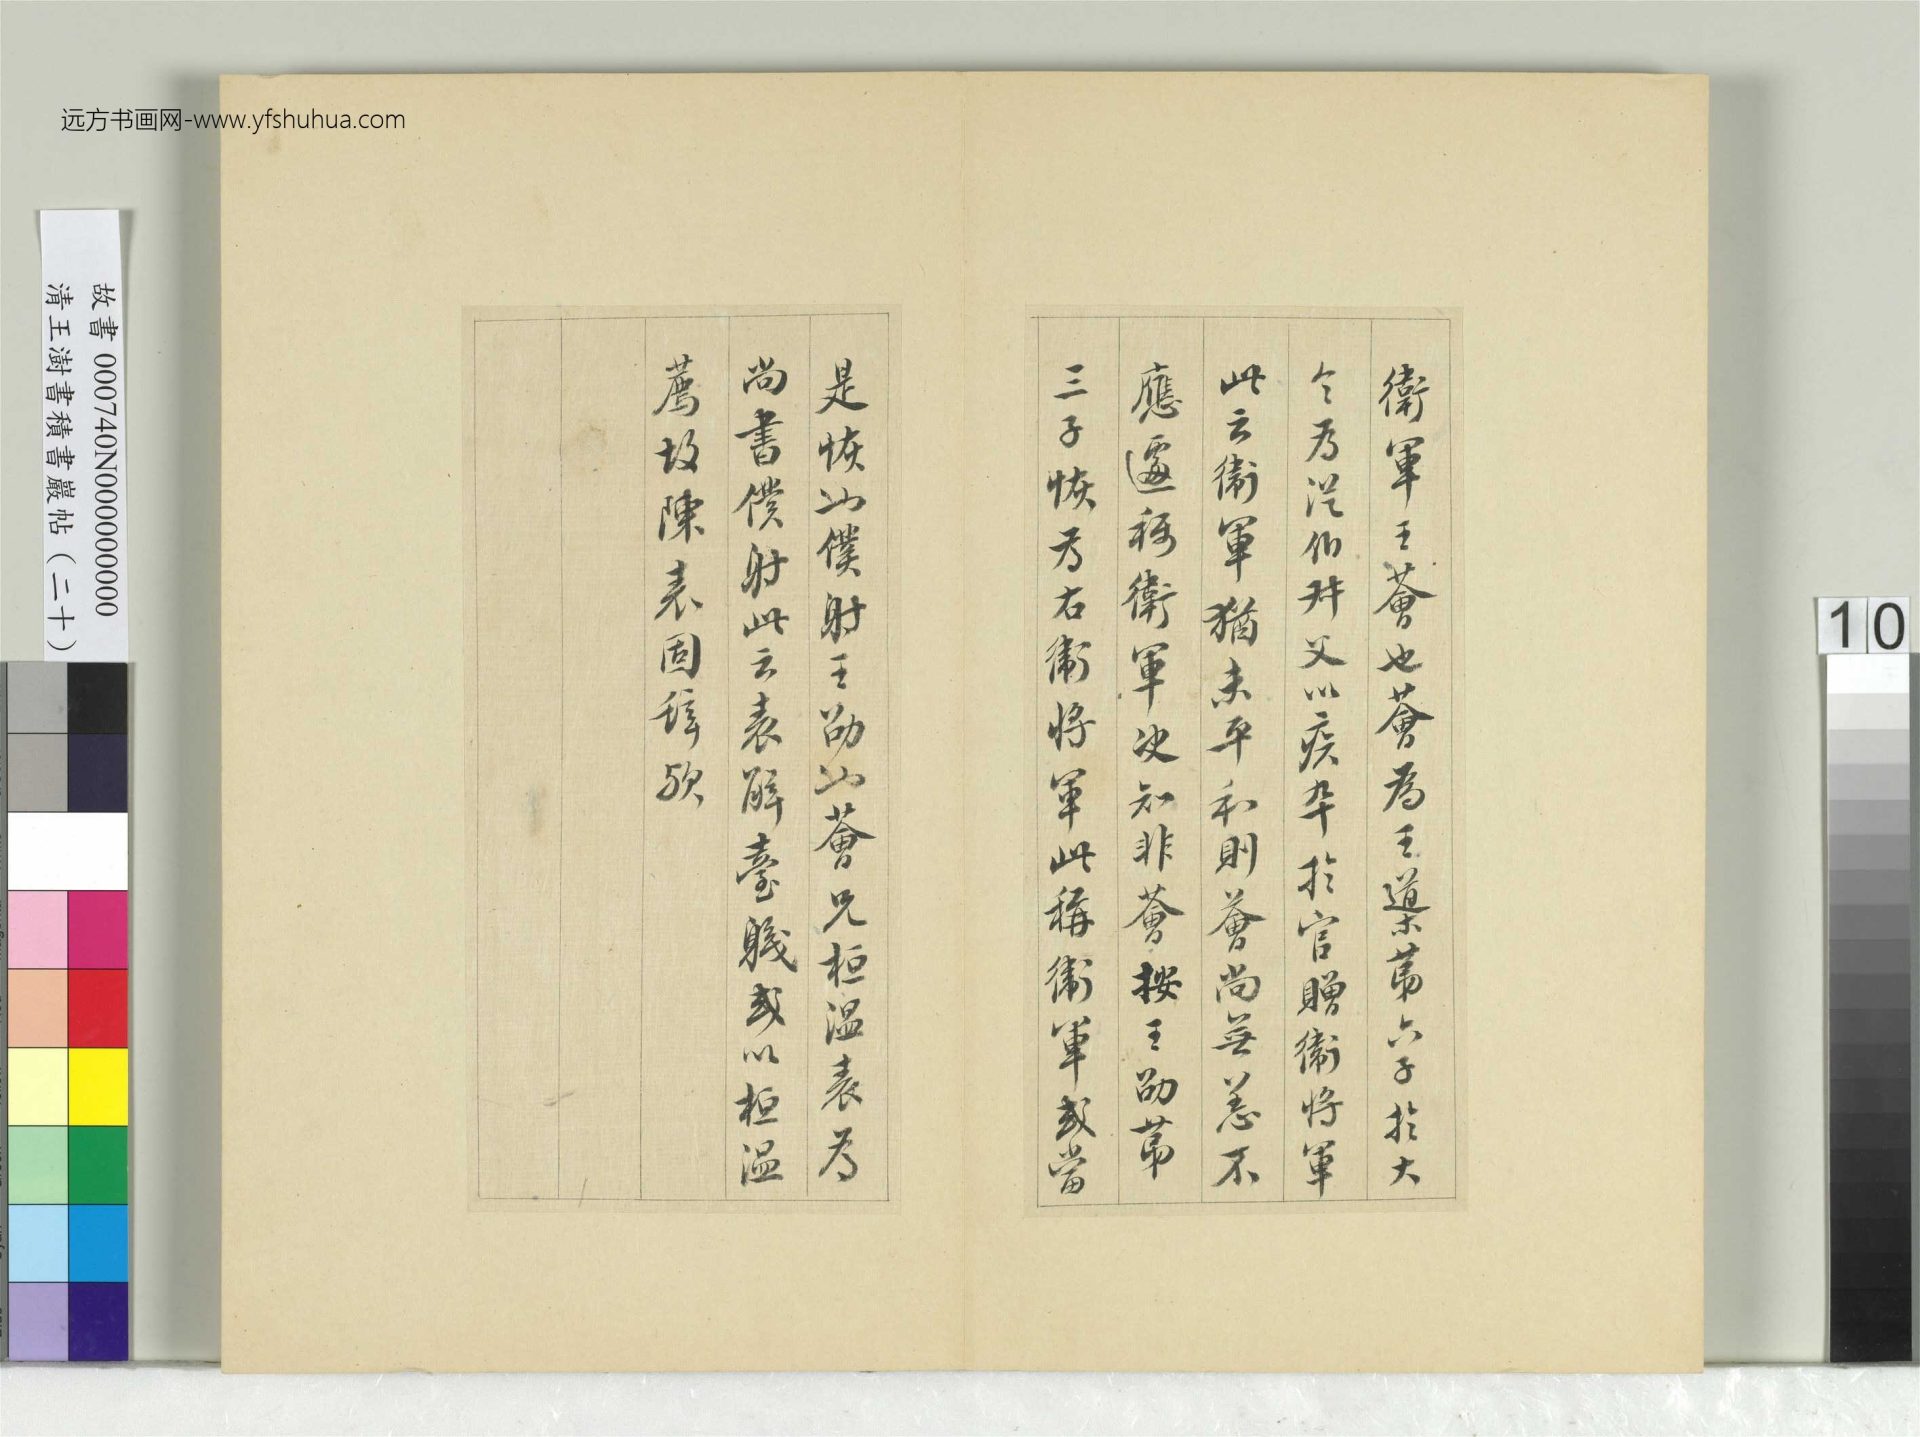 远方书画网-www.yfshuhua.com
故書 000740N000000000
清王澍書積書巖帖（二十）
10
衛軍王薈也薈為王導第六子於大
令為從伯叔父以疾卒於官贈衛將軍
此云衛軍猶未平和則薈尚無恙不
應遽稱衛軍決知非薈按王劭第
三子恢為右衛將軍此稱衛軍或當
是恢山僕射王劭山薈兄桓溫表為
尚書僕射此云表解臺職或以桓溫
薦故陳表固辭歟